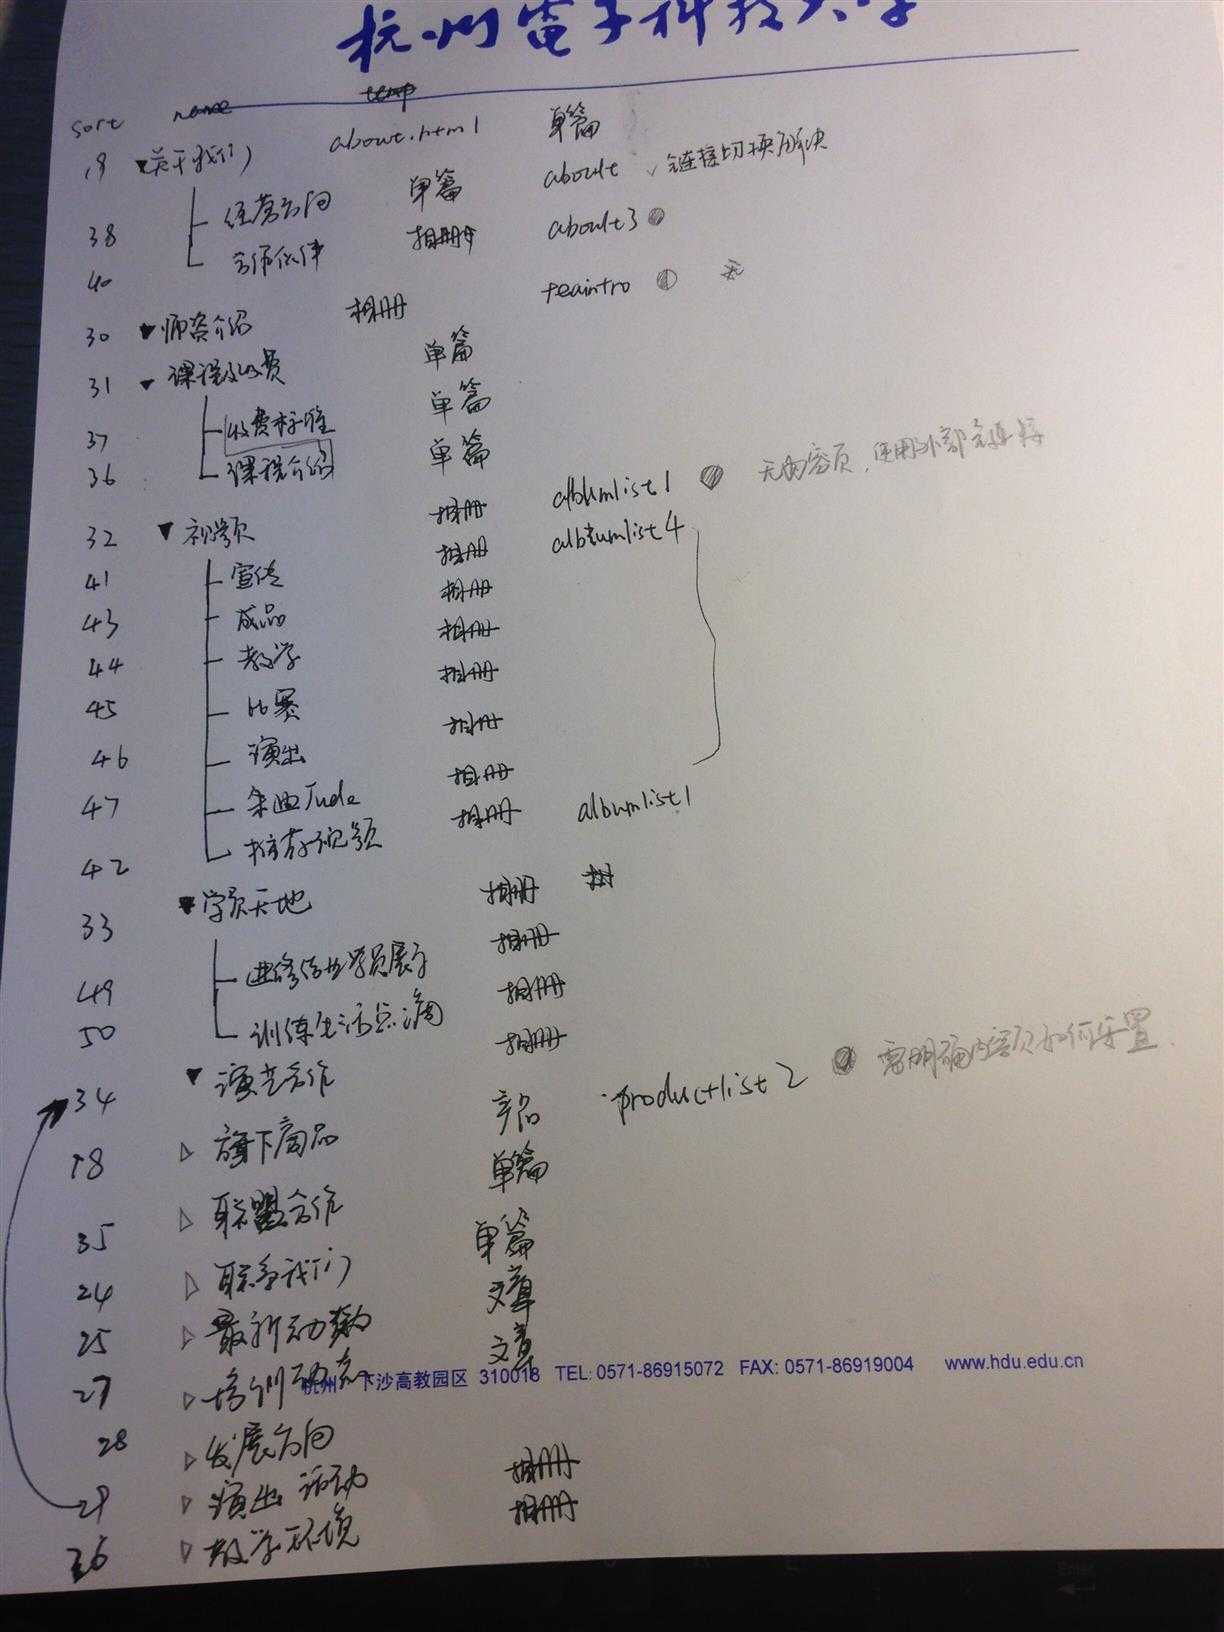 杭州電子科技大学
sort name temp
19 ▼关于我们 about.html 单篇
38 经营方向 单篇 about √链接切换解决
40 合作伙伴 相册 about3
30 ▼师资介绍 相册 teaintro 无
31 ▼课程及收费 单篇
37 收费标准 单篇
36 课程介绍 单篇
32 ▼视频 相册 albumlist1 无内容页,使用外部链接
41 宣传 相册 albumlist4
43 成品 相册
44 教学 相册
45 比赛 相册
46 演出 相册
47 Jude 相册
42 推荐视频 相册 albumlist1
33 ▼学员天地 相册
49 进修 学员展示 相册
50 训练生活点滴 相册
34 ▼演艺合作 相册
18 ▷旗下商品 产品 productlist2 需明确内容页如何布置
35 ▷联盟合作 单篇
24 ▷联系我们 单篇
25 ▷最新动态 文章
27 ▷培训动态 文章
杭州 下沙高教园区 310018 TEL: 0571-86915072 FAX: 0571-86919004 www.hdu.edu.cn
28 ▷发展方向
29 ▷演出活动 相册
26 ▷教学环境 相册